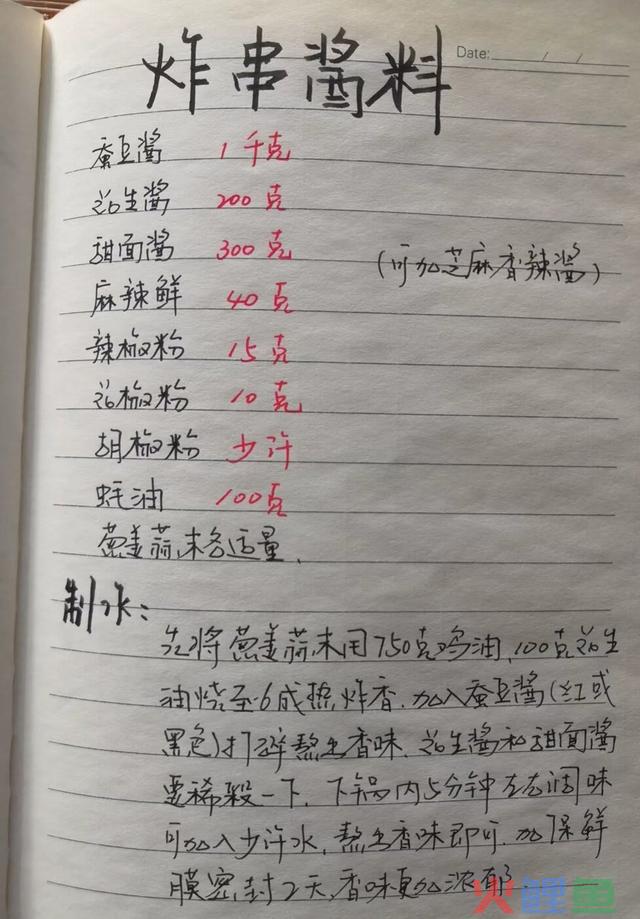 炸串酱料
Date: / /
蚕豆酱 1千克
花生酱 200克
甜面酱 300克
(可加芝麻香辣酱)
麻辣鲜 40克
辣椒粉 15克
花椒粉 10克
胡椒粉 少许
蚝油 100克
葱姜蒜末各适量.
制水:
先将葱姜蒜末用750克鸡油,100克花生
油烧至6成热,炸香.加入蚕豆酱(红或
黑色)打碎熬出香味.花生酱和甜面酱
要稀一下,下锅内5分钟左右调味
可加入少许水,熬出香味即可.加保鲜
膜密封2天,香味更加浓郁.
火鲤鱼